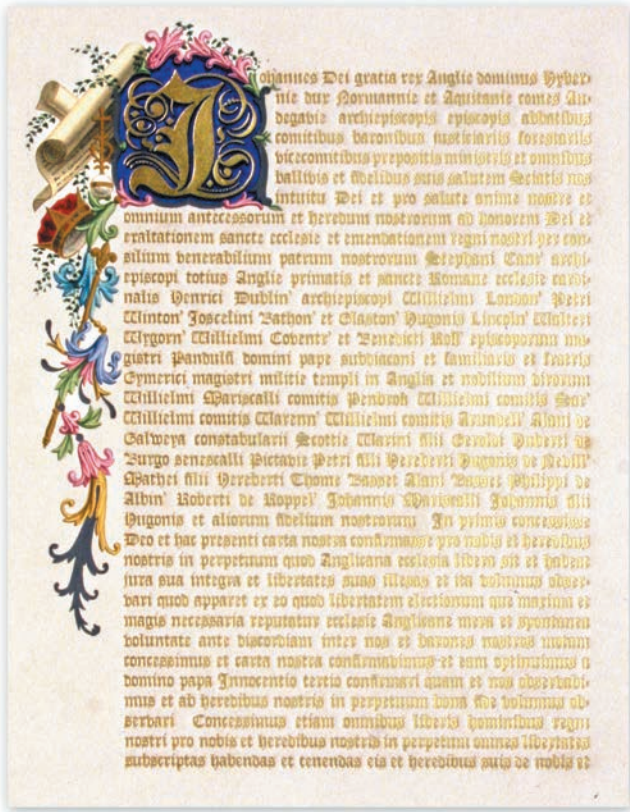 Johannes Dei gratia rex Anglie dominus Hyber-
nie dux Normannie et Aquitanie comes An-
degavie archiepiscopis episcopis abbatibus
comitibus baronibus justiciariis forestariis
vicecomitibus prepositis ministris et omnibus
ballivis et fidelibus suis salutem Sciatis nos
intuitu Dei et pro salute anime nostre et
omnium antecessorum et heredum nostrorum ad honorem Dei et
exaltationem sancte ecclesie et emendationem regni nostri per con-
silium venerabilium patrum nostrorum Stephani Cant' archi-
episcopi totius Anglie primatis et sancte Romane ecclesie cardi-
nalis Henrici Dublin' archiepiscopi Willielmi London' Petri
Winton' Joscelini Bathon' et Glaston' Hugonis Lincoln' Walteri
Wygorn' Willielmi Coventr' et Benedicti Roff' episcoporum ma-
gistri Pandulfi domini pape subdiaconi et familiaris et fratris
Eymerici magistri militie templi in Anglia et nobilium virorum
Willielmi Mariscalli comitis Penbrok Willielmi comitis Sar'
Willielmi comitis Warenn' Willielmi comitis Arundell' Alani de
Galweya constabularii Scottie Warini filii Geroldi Huberti de
Burgo senescalli Pictavie Petri filii Hereberti Hugonis de Nevill'
Mathei filii Hereberti Thome Basset Alani Basset Philippi de
Albin' Roberti de Roppel' Johannis Mariscalli Johannis filii
Hugonis et aliorum fidelium nostrorum In primis concessisse
Deo et hac presenti carta nostra confirmasse pro nobis et heredibus
nostris in perpetuum quod Anglicana ecclesia libera sit et habeat
jura sua integra et libertates suas illesas et ita volumus obser-
vari quod apparet ex eo quod libertatem electionum que maxima et
magis necessaria reputatur ecclesie Anglicane mera et spontanea
voluntate ante discordiam inter nos et barones nostros motam
concessimus et carta nostra confirmavimus et eam optinuimus a
domino papa Innocentio tertio confirmari quam et nos observabi-
mus et ab heredibus nostris in perpetuum bona fide volumus ob-
servari Concessimus etiam omnibus liberis hominibus regni
nostri pro nobis et heredibus nostris in perpetuum omnes libertates
subscriptas habendas et tenendas eis et heredibus suis de nobis et